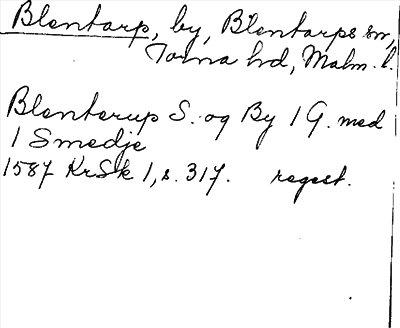 Blentarp, by, Blentarps sn,
Torna hd, Malm. l.
Blenterup S. og By 1 G. med
1 Smedje
1587 KrSk 1, s. 317. regest.